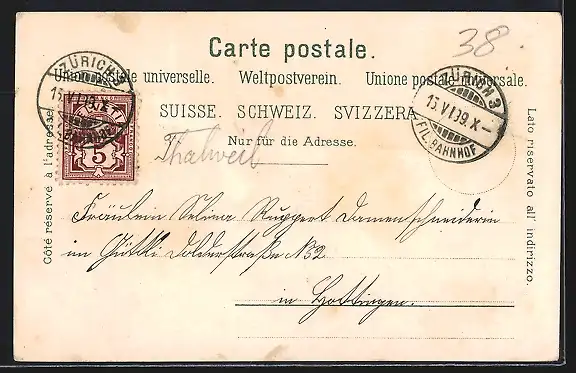 Carte postale.
38.
Union postale universelle. Weltpostverein. Unione postale universale.
SUISSE. SCHWEIZ. SVIZZERA.
Nur für die Adresse.
Côté réservé à l'adresse.
Lato riservato all' indirizzo.
ZÜRICH
15.VI.99.X–
BAHNHOF
5
ZÜRICH 3
15.VI.99.X–
FIL. BAHNHOF
Thalweil
Fräulein Selina Ruppert Damenschneiderin
im Gütli Dolderstraße No 32
in Hottingen.